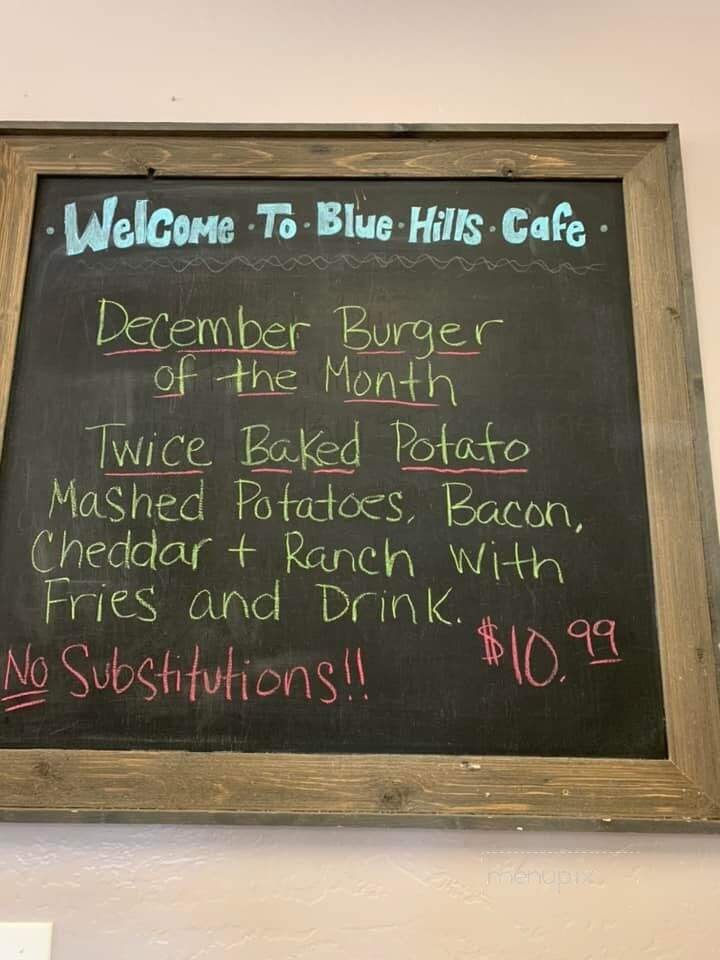 · Welcome · To · Blue · Hills · Cafe ·
December Burger
of the Month
Twice Baked Potato
Mashed Potatoes, Bacon,
Cheddar + Ranch With
Fries and Drink.
No Substitutions!! $10.99
menupix